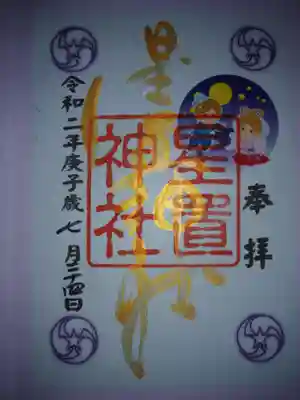 奉拝
星置神社
星置神社
令和二年庚子歳七月二十四日